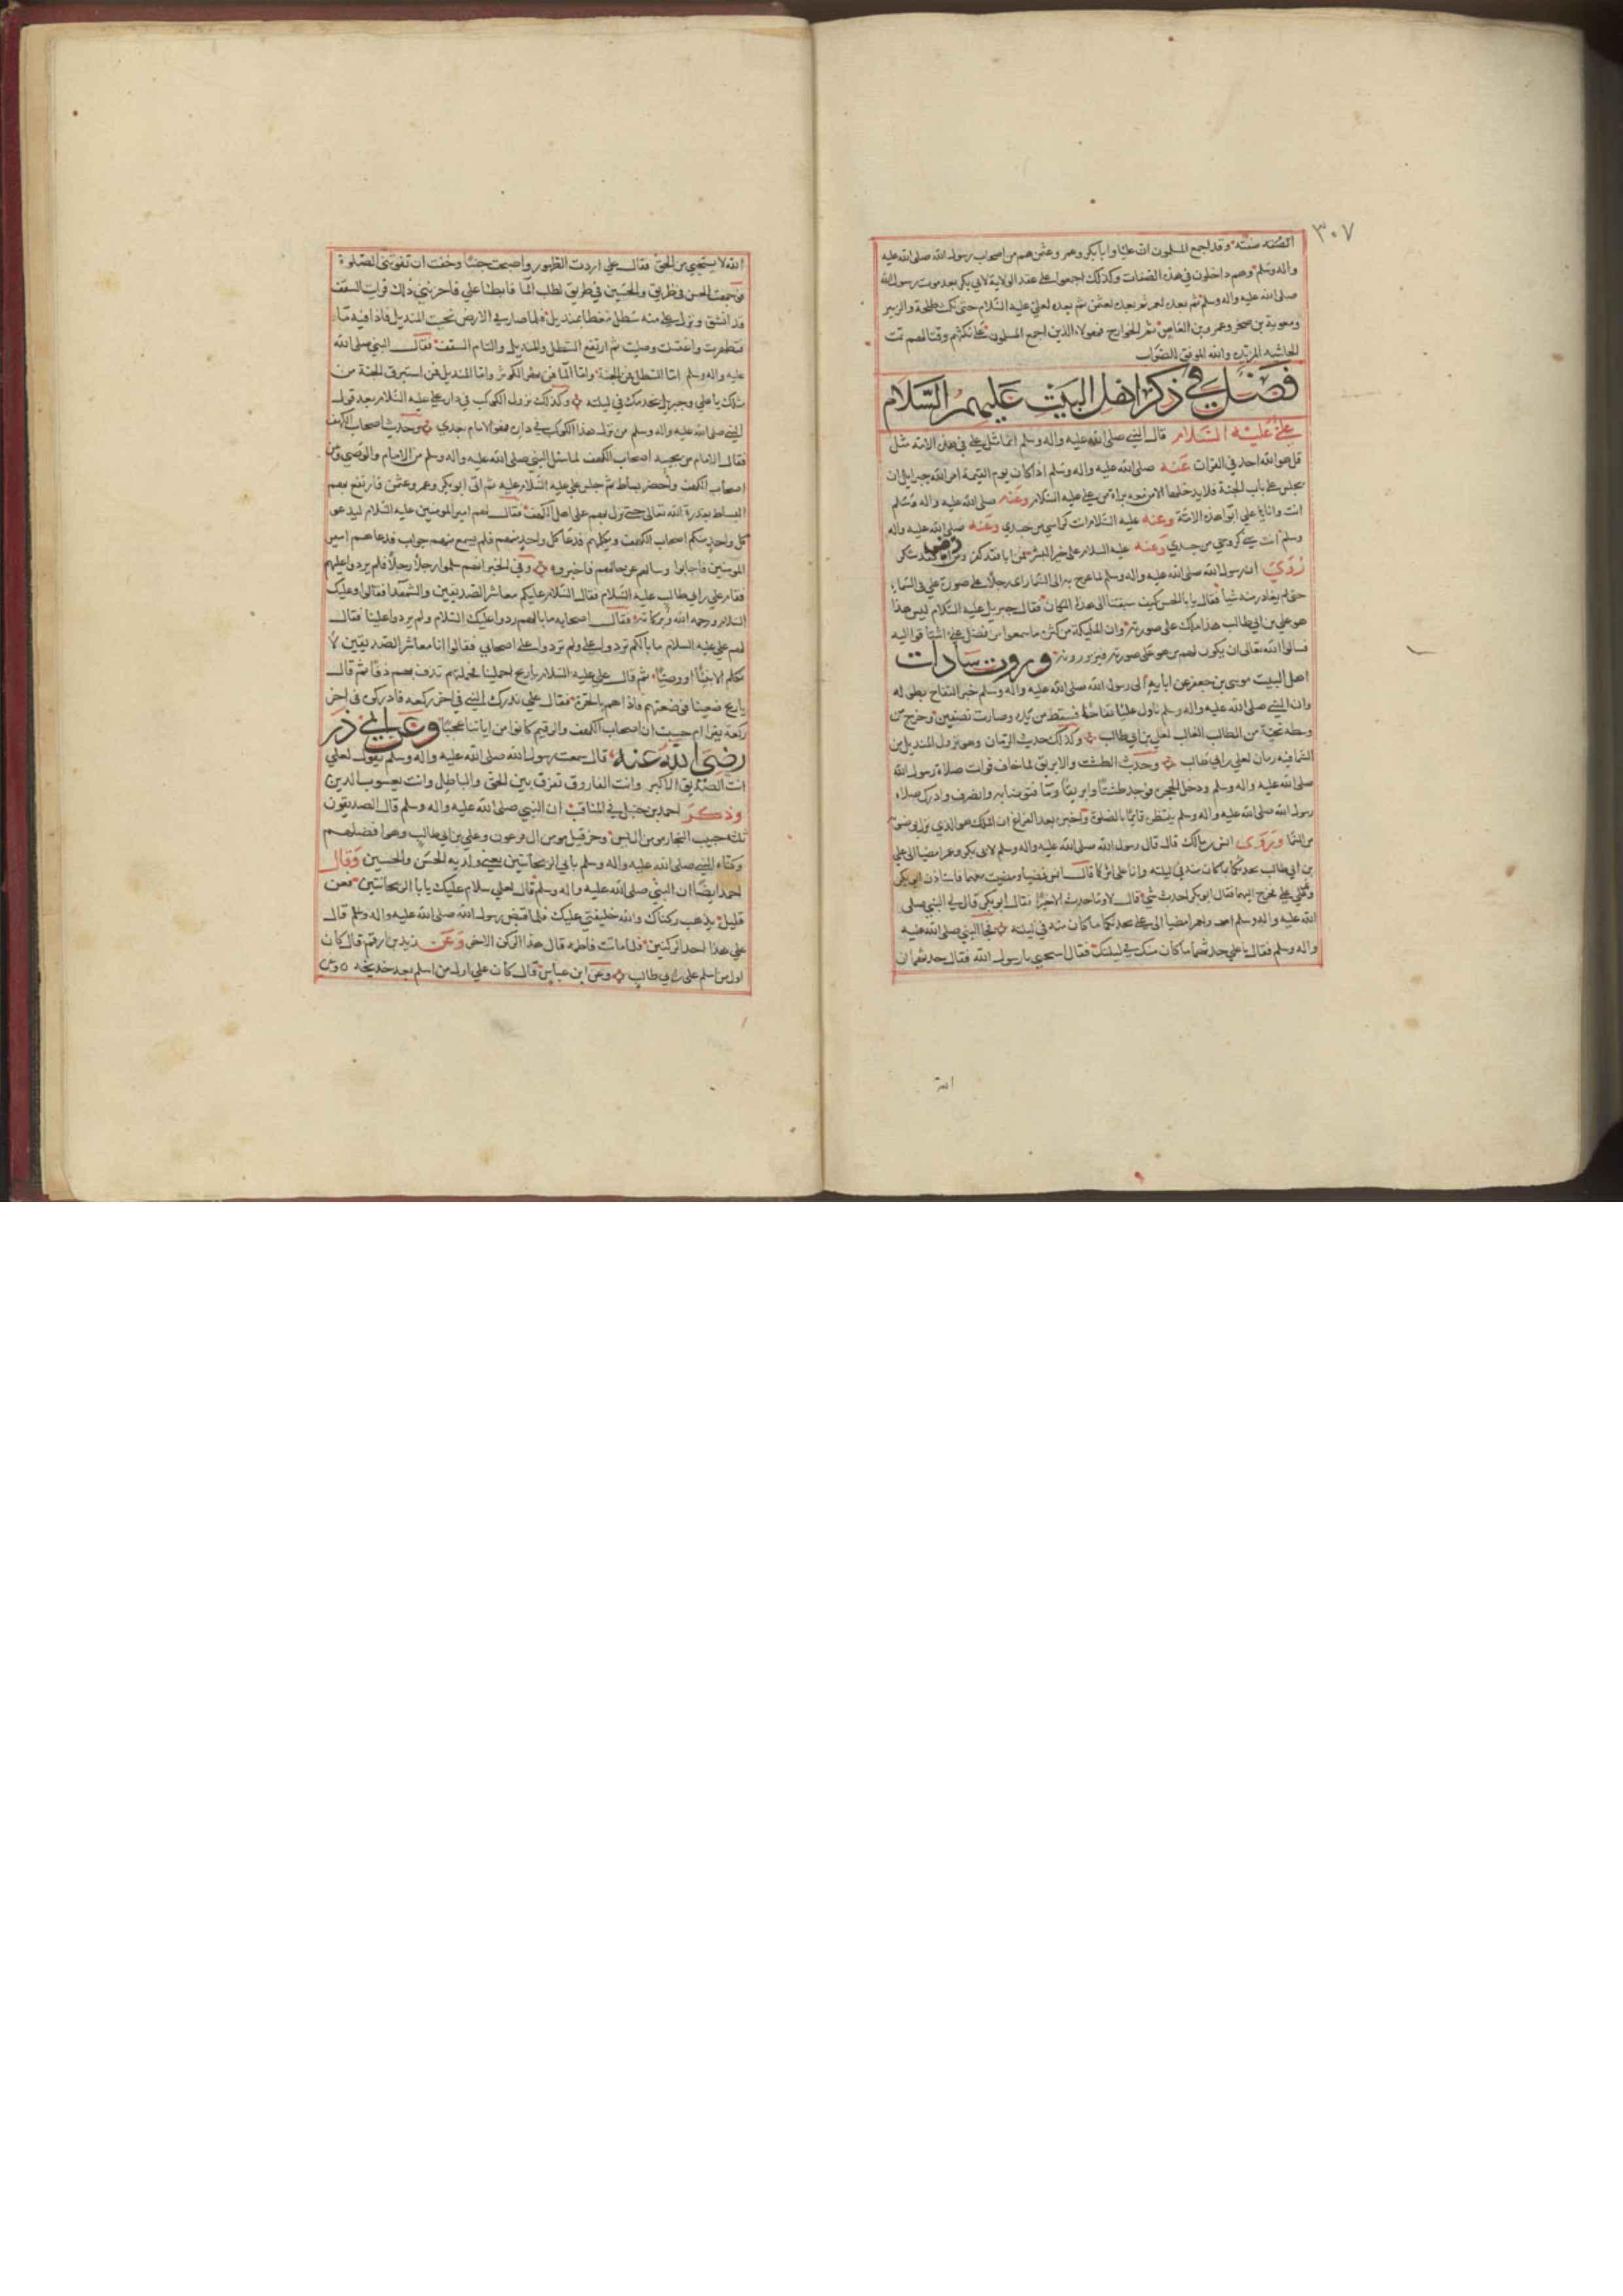 ٣٠٧
الصفه صفته وقد اجمع المسلمون ان عليا وابا بكر وعمر وعثمن هم من اصحاب رسول الله صلى الله عليه
واله وسلم وهم داخلون في هذه الصفات وكذلك اجمعوا على عقد الولاية لابي بكر بعد موت رسول الله
صلى الله عليه واله وسلم ثم بعده لعمر ثم بعده لعثمن ثم بعده لعلي عليه السلام حتى نكث طلحة والزبير
ومعوية بن صخر وعمرو بن العاص ثم الخوارج فهولاء الذين اجمع المسلمون على نكثهم وقتالهم تمت
الحاشيه المزيده والله الموفق للصواب
فصل في ذكر اهل البيت عليهم السلام
علي عليه السلام قال النبي صلى الله عليه واله وسلم انما مثل علي في هذه الامه مثل
قل هو الله احد في القران عنه صلى الله عليه واله وسلم اذا كان يوم القيمة امر الله جبرايل ان
يجلس على باب الجنة فلا يدخلها الا من معه براة من علي عليه السلام وعنه صلى الله عليه واله وسلم
انت وانا يا علي ابوا هذه الامة وعنه عليه السلام انت كراسي من جسدي وعنه صلى الله عليه واله
وسلم انت مني كروحي من جسدي وعنه عليه السلام علي خير البشر فمن ابا فقد كفر ومن رضى فقد شكر
روي ان رسول الله صلى الله عليه واله وسلم لما عرج به الى السما راى رجلا على صورة علي في السماء
حتى لم يغادر منه شيا فقال يا ابا الحسن كيف سبقتنا الى هذا المكان فقال جبريل عليه السلام ليس هذا
هو علي بن ابي طالب هذا ملك على صورته وان المليكة من كثرة ما سمعوا من فضل علي اشتاقوا اليه
فسالوا الله تعالى ان يكون لهم من هو على صورته فيزورونه وروت سادات
اهل البيت موسى بن جعفر عن ابايه الى رسول الله صلى الله عليه واله وسلم خبر التفاح بطوله
وان النبي صلى الله عليه واله وسلم ناول عليا تفاحة فسقط من يده وصارت نصفين وخرج من
وسطه تحية من الطالب الغالب لعلي بن ابي طالب وكذلك حديث الرمان وهو نزول المنديل من
السما فيه رمان لعلي بن ابي طالب وحديث الطشت والابريق لما خاف فوات صلاة رسول الله
صلى الله عليه واله وسلم ودخل الحجرة فوجد طشتا وابريقا وما فتوضا به وانصرف وادرك صلاه
رسول الله صلى الله عليه واله وسلم ينتظره قايما بالصلوة واخبره بعد الفراغ ان الملك هو الذي نزل بوضوء
من السما وروى انس بن مالك قال قال رسول الله صلى الله عليه واله وسلم لابي بكر وعمر امضيا الى علي
بن ابي طالب يحدثكما ما كان منه في ليلته وانا على اثركما قال انس فمضيا ومضيت معهما فاستاذن ابو بكر
وعمر على علي فخرج اليهما فقال ابو بكر احدث شي قال لا وما حدث الا خيرا فقال ابو بكر قال لي النبي صلى
الله عليه واله وسلم امض ولعمر امضيا الى علي يحدثكما ما كان منه في ليلته فجا النبي صلى الله عليه
واله وسلم فقال يا علي حدثهما ما كان منك في ليلتك فقال استحيي يا رسول الله فقال حدثهما ان
الله
الله لا يستحيي من الحق فقال علي اردت الطهور واصبحت جنبا وخفت ان تفوتني الصلوة
فوجهت الحسن في طريق والحسين في طريق لطلب الما فابطئا علي فاحزنني ذلك فرايت السقف
قد انشق ونزل علي منه سطل مغطا بمنديل فلما صار في الارض نحيت المنديل فاذا فيه ما
فتطهرت واغتسلت وصليت ثم ارتفع السطل والمنديل والتام السقف فقال النبي صلى الله
عليه واله وسلم اما السطل فمن الجنة واما الما فمن نهر الكوثر واما المنديل فمن استبرق الجنة من
مثلك يا علي وجبريل يخدمك في ليلته وكذلك نزول الكوكب في دار علي عليه السلام بعد قول
النبي صلى الله عليه واله وسلم من نزل هذا الكوكب في داره فهو الامام بعدي وحديث اصحاب الكهف
فقال الامام من يجيبه اصحاب الكهف لما سئل النبي صلى الله عليه واله وسلم من الامام والوصي ومن
اصحاب الكهف واحضر بساط ثم جلس علي عليه السلام عليه ثم اتى ابو بكر وعمر وعثمن فارتفع بهم
البساط بقدرة الله تعالى حتى نزل بهم على اهل الكهف فقال لهم امير المومنين عليه السلام ليدعو
كل واحد منكم اصحاب الكهف ويكلمهم فدعا كل واحد منهم فلم يسمع منهم جواب فدعاهم امير
المومنين فاجابوا وسالهم عن حالهم فاخبروه وفي الخبر انهم سلموا رجلا رجلا فلم يردوا عليهم
فقام علي بن ابي طالب عليه السلام فقال السلام عليكم معاشر الصديقين والشهدا فقالوا وعليك
السلام ورحمه الله وبركاته فقال اصحابه ما بالهم ردوا عليك السلام ولم يردوا علينا فقال
لهم علي عليه السلام ما بالكم تردوا علي ولم تردوا على اصحابي فقالوا انا معاشر الصديقين لا
نكلم الا نبيا او وصيا ثم قال علي عليه السلام يا ريح احملينا فحملتهم تدف بهم دفا ثم قال
يا ريح ضعينا فوضعتهم فاذا هم بالحرة فقال علي ندرك النبي في اخر ركعه فادركوه في اخر
ركعة يقرا ام حسبت ان اصحاب الكهف والرقيم كانوا من اياتنا عجبا وعن ابي ذر
رضي الله عنه قال سمعت رسول الله صلى الله عليه واله وسلم يقول لعلي
انت الصديق الاكبر وانت الفاروق تفرق بين الحق والباطل وانت يعسوب الدين
وذكر احمد بن حنبل في المناقب ان النبي صلى الله عليه واله وسلم قال الصديقون
ثلثه حبيب النجار مومن ال يس وحزقيل مومن ال فرعون وعلي بن ابي طالب وهو افضلهم
وكناه النبي صلى الله عليه واله وسلم بابي الريحانتين يعني ولديه الحسن والحسين وقال
احمد ايضا ان النبي صلى الله عليه واله وسلم قال لعلي سلام عليك يا ابا الريحانتين فعن
قليل يذهب ركناك والله خليفتي عليك فلما قبض رسول الله صلى الله عليه واله وسلم قال
علي هذا احد الركنين فلما ماتت فاطمه قال هذا الركن الاخر وعن زيد بن ارقم قال كان
اول من اسلم علي بن ابي طالب وعن ابن عباس قال كان علي اول من اسلم بعد خديجه